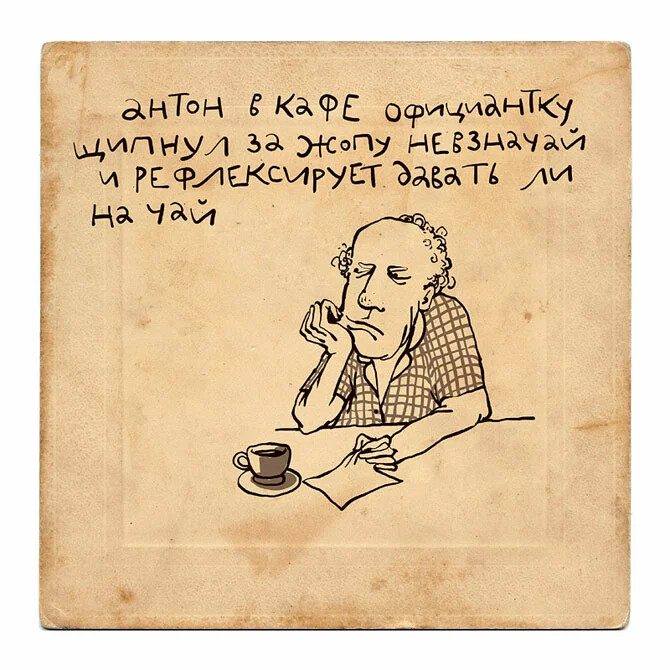 антон в кафе официантку
щипнул за жопу невзначай
и рефлексирует давать ли
на чай